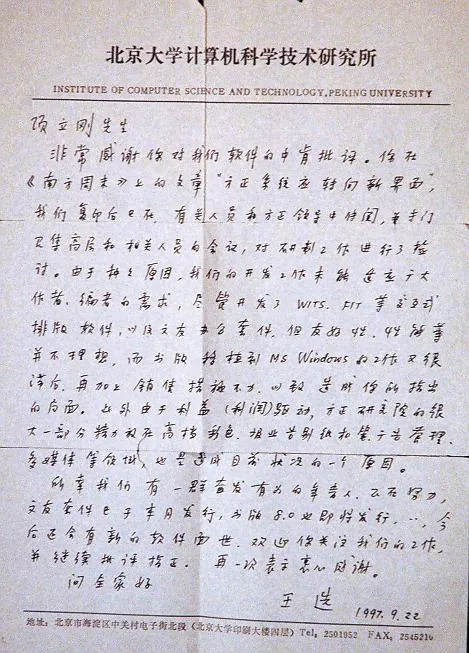 北京大学计算机科学技术研究所
INSTITUTE OF COMPUTER SCIENCE AND TECHNOLOGY,PEKING UNIVERSITY
项立刚先生
非常感谢你对我们软件的中肯批评。你在
《南方周末》上的文章“方正系统应转向新界面”,
我们复印后已在有关人员和方正领导中传阅,并专门
召集高层和相关人员的会议,对研制工作进行了检
讨。由于种种原因,我们的开发工作未能适应广大
作者、编者的需求,尽管开发了WITS、FIT等交互式
排版软件,以及文友办公套件,但友好性、性能等
并不理想,而书版移植到MS Windows的工作又很
滞后,再加上销售措施不力,以致造成你所指出
的局面。此外由于利益(利润)驱动,方正研究院的很
大一部分精力放在高档彩色、报业告别纸和笔、广告管理、
多媒体等领域,也是造成目前状况的一个原因。
所幸我们有一群奋发有为的年青人,正在努力,
文友套件已于本月发行,书版8.0也即将发行,…,今
后还会有新的软件面世。欢迎你关注我们的工作,
并继续批评指正。再一次表示衷心感谢。
问全家好
王选
1997.9.22
地址:北京市海淀区中关村电子街北段(北京大学印刷大楼四层)Tel:2501952 FAX:2545210